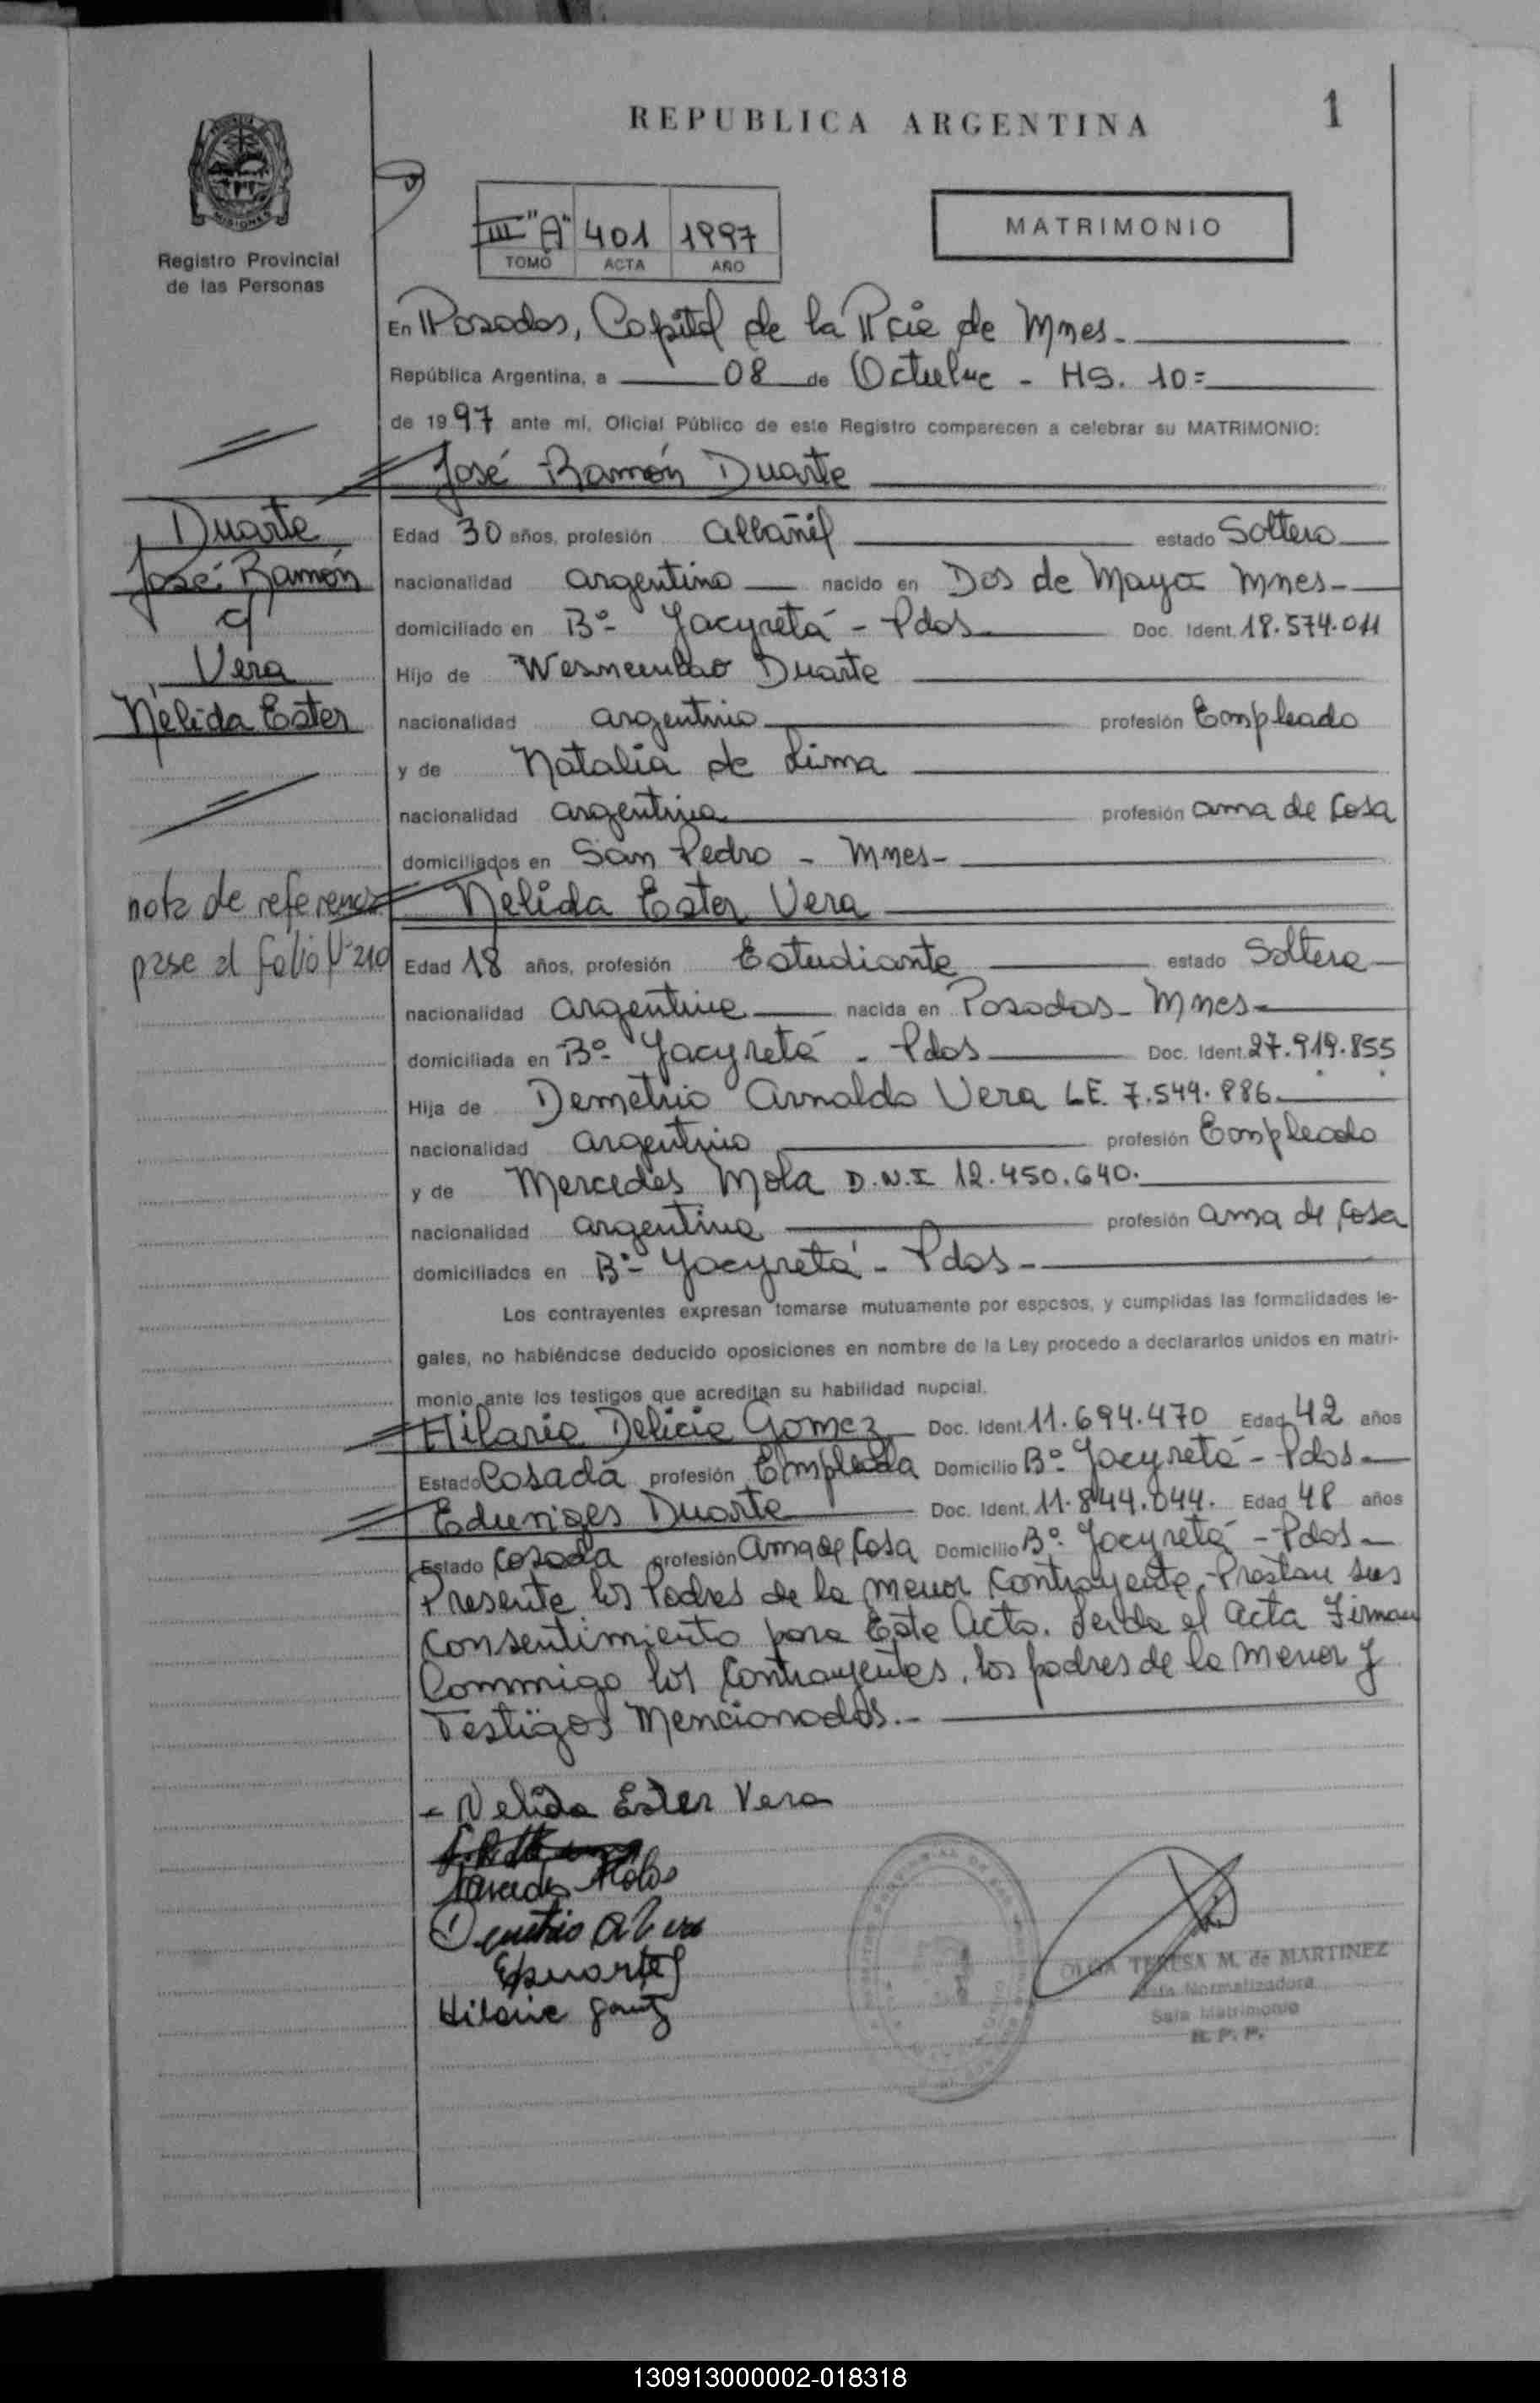 REPUBLICA ARGENTINA
1
MISIONES
Registro Provincial
de las Personas
III "A" 401 1997
TOMO ACTA AÑO
MATRIMONIO
En Posadas, Capital de la Pcia de Mnes.
República Argentina, a 08 de Octubre - HS. 10=
de 1997 ante mí, Oficial Público de este Registro comparecen a celebrar su MATRIMONIO:
José Ramón Duarte
Duarte
José Ramón
c/
Vera
Nélida Ester
Edad 30 años, profesión albañil estado Soltero
nacionalidad argentino nacido en Dos de Mayo Mnes-
domiciliado en Bº- Yacyretá - Pdas Doc. Ident. 18.574.011
Hijo de Duarte
nacionalidad argentino profesión Empleado
y de Natalia de Lima
nacionalidad argentina profesión ama de Casa
domiciliados en San Pedro - Mnes-
nota de referencia
pase al folio Nº 210
Nelida Ester Vera
Edad 18 años, profesión Estudiante estado Soltera
nacionalidad argentina nacida en Posadas - Mnes-
domiciliada en Bº- Yacyretá - Pdas Doc. Ident. 27.919.855
Hija de Demetrio Arnaldo Vera LE. 7.549.886
nacionalidad argentino profesión Empleado
y de Mercedes Mola D.N.I 12.450.640.
nacionalidad argentina profesión ama de Casa
domiciliados en Bº- Yacyretá - Pdas-
Los contrayentes expresan tomarse mutuamente por esposos, y cumplidas las formalidades le-
gales, no habiéndose deducido oposiciones en nombre de la Ley procedo a declararlos unidos en matri-
monio ante los testigos que acreditan su habilidad nupcial.
Hilaria Delicia Gomez Doc. Ident. 11.694.470 Edad 42 años
Estado Casada profesión Empleada Domicilio Bº- Yacyretá - Pdas-
Eduviges Duarte Doc. Ident. 11.844.044. Edad 48 años
Estado Casada profesión Ama de Casa Domicilio Bº- Yacyretá - Pdas-
Presente los Padres de la menor Contrayente, Prestan sus
Consentimiento para Este Acto. Leída el Acta Firman
Conmigo los Contrayentes, los padres de la menor y
Testigos Mencionados.-
- Nelida Ester Vera
Mercedes Mola
Demetrio A Vera
EDuarte
Hilaria Gomez
OLGA TERESA M. de MARTINEZ
Jefa Normalizadora
Sala Matrimonio
R. P. P.
130913000002-018318